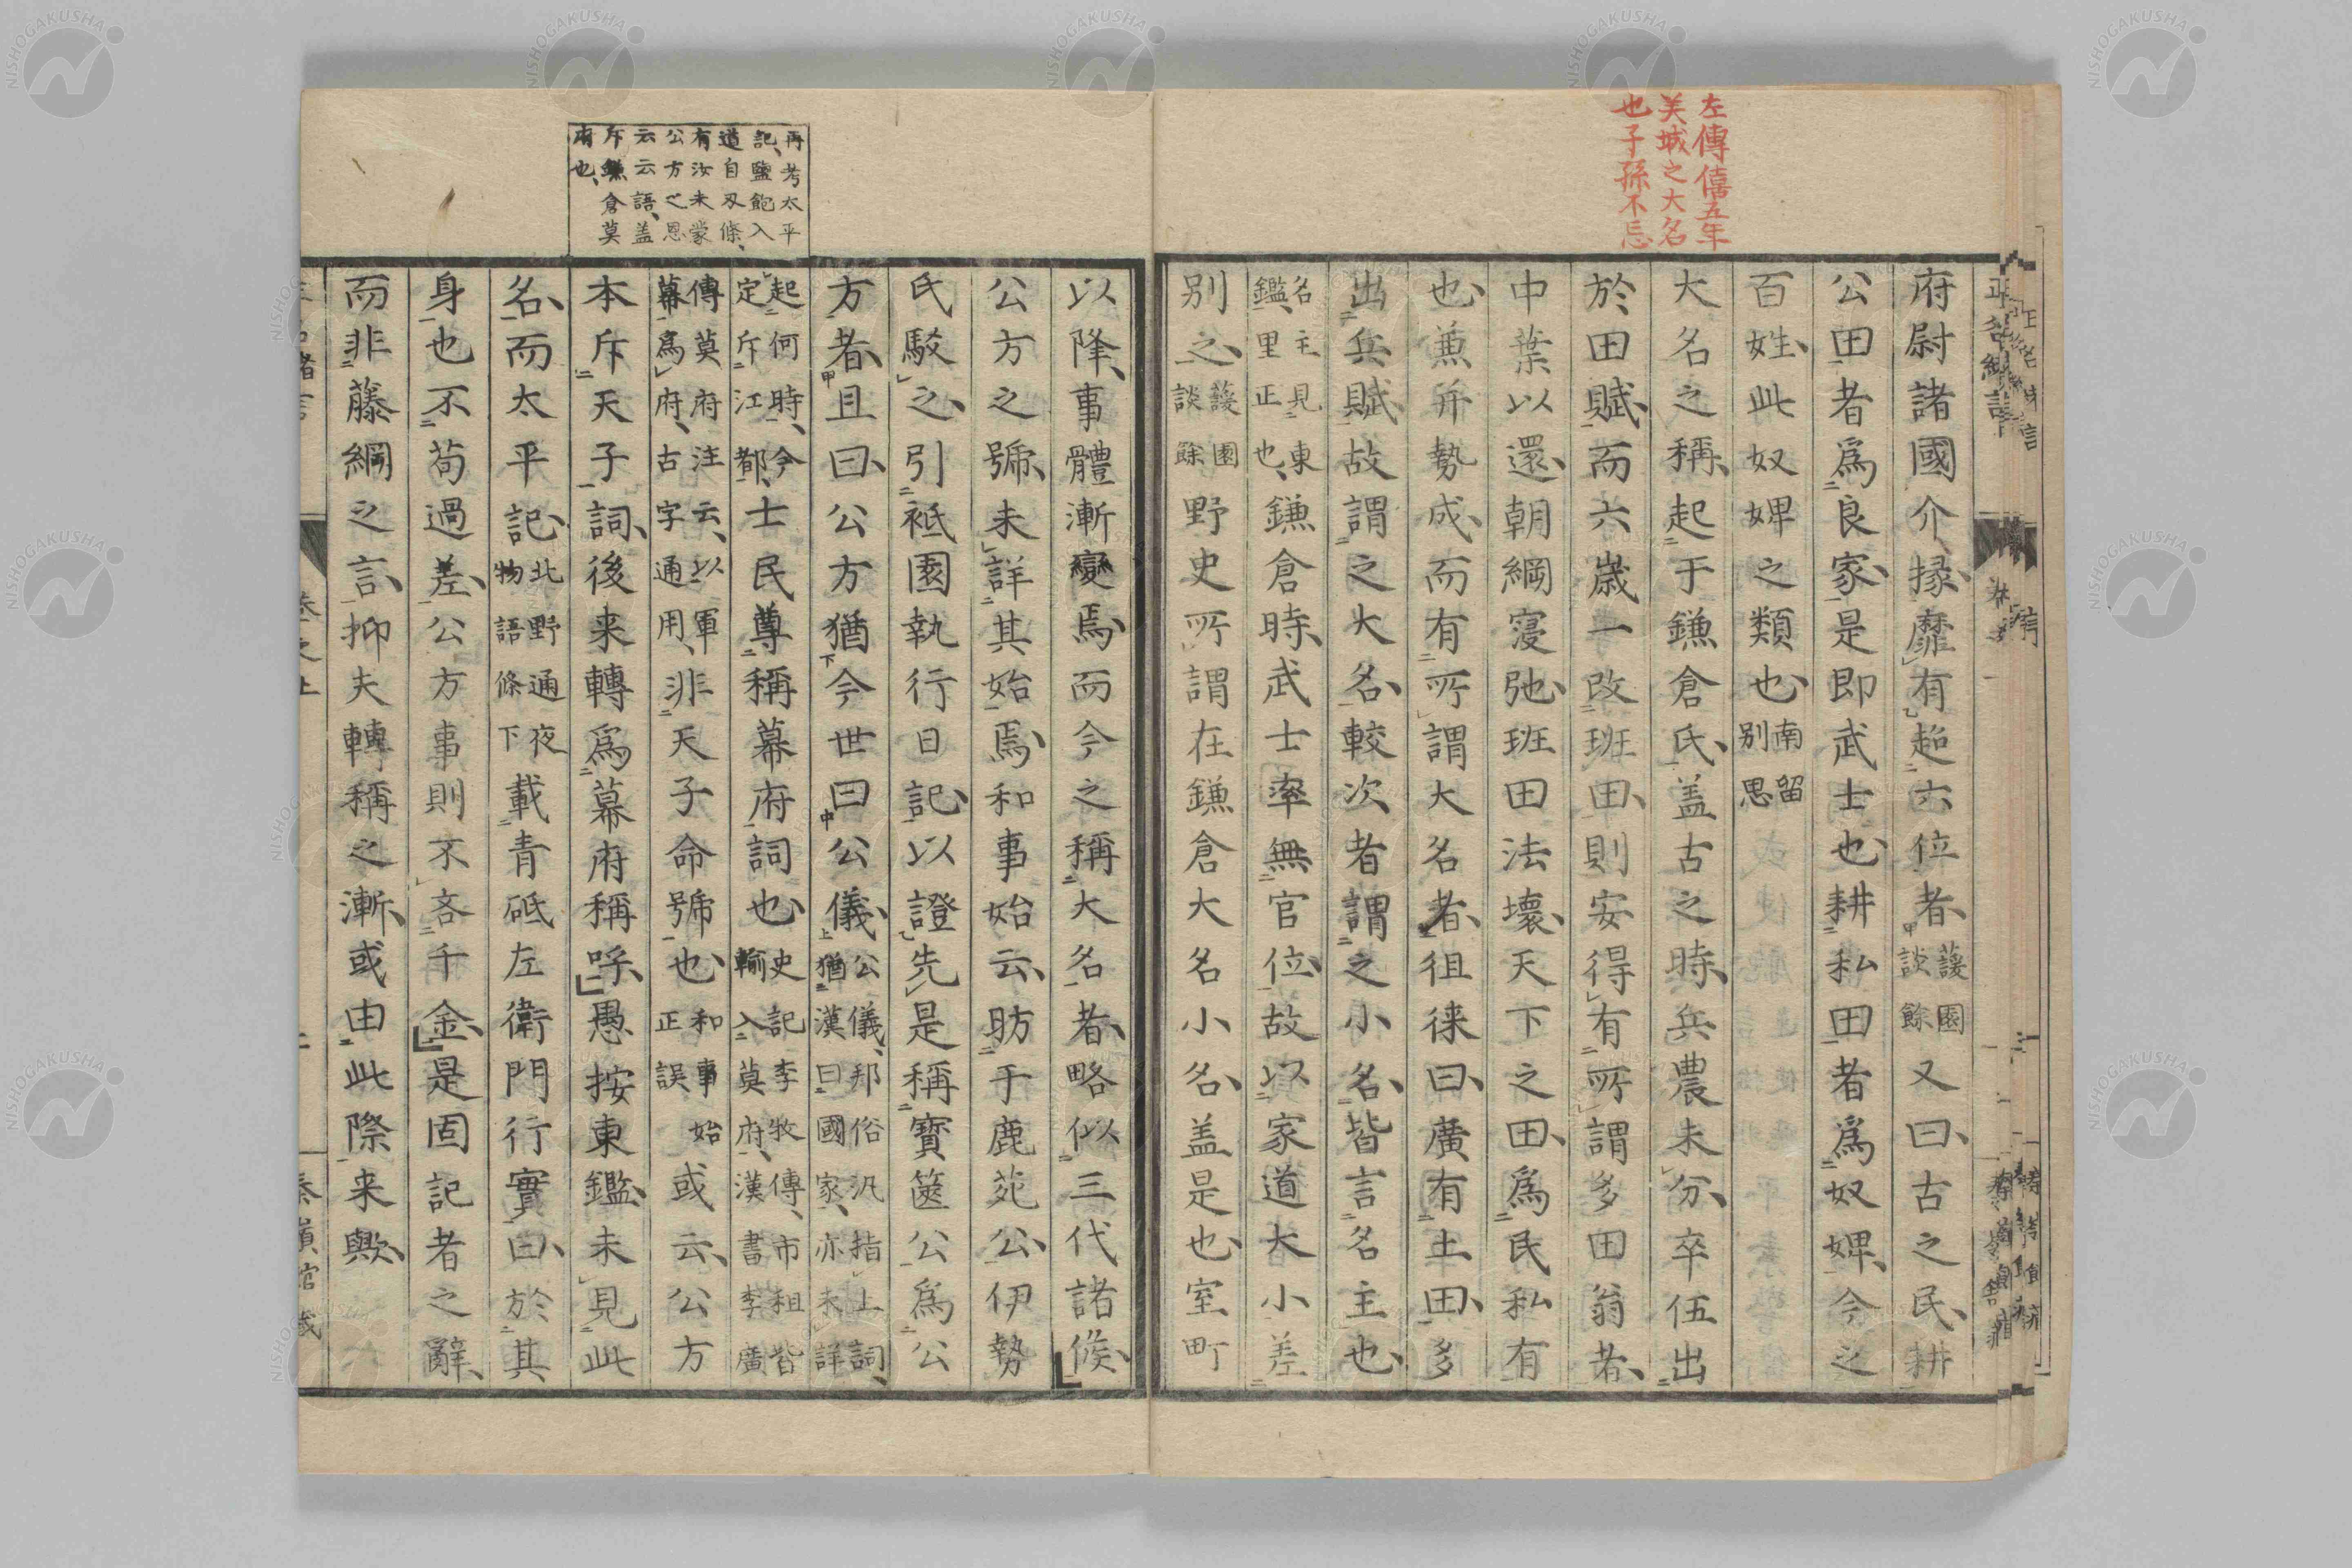 左傳僖五年
美城之大名
也子孫不忘
府尉諸國介掾、靡有超六位者、蘐園談餘又曰、古之民、耕
公田者爲良家、是即武士也、耕私田者爲奴婢、今之
百姓、此奴婢之類也、南留別思
大名之稱、起于鎌倉氏、盖古之時、兵農未分、卒伍出
於田賦、而六歲一改班田、則安得有所謂多田翁者、
中葉以還、朝綱寖弛、班田法壞、天下之田、爲民私有
也、兼并勢成、而有所謂大名者、徂徠曰、廣有土田、多
出兵賦、故謂之大名、較次者謂之小名、皆言名主也、
名主見東鑑、里正也、鎌倉時、武士率無官位、故以家道大小差
別之、蘐園談餘野史所謂在鎌倉大名小名、盖是也、室町
再考太平
記、鹽飽入
道自刃條、
有汝未蒙
公方之恩
云云語、盖
斥鎌倉莫
府也、
以降、事體漸變焉、而今之稱大名者、略似三代諸侯、
公方之號、未詳其始焉、和事始云、昉于鹿苑公、伊勢
氏駁之、引祗園執行日記、以證先是稱寶篋公爲公
方者、且曰、公方猶今世曰公儀、公儀、邦俗汎指上詞、猶漢曰國家、亦未詳
起何時、今定斥江都、士民尊稱幕府詞也、史記李牧傳、市租皆輸入莫府、漢書李廣
傳莫府注云、以軍幕爲府、古字通用、非天子命號也、和事始正誤或云、公方
本斥天子詞、後来轉爲幕府稱呼、愚按東鑑、未見此
名、而太平記、北野通夜物語條下載青砥左衛門行實曰、於其
身也不苟過差、公方事則不吝千金、是固記者之辭、
而非藤綱之言、抑夫轉稱之漸、或由此際来歟、